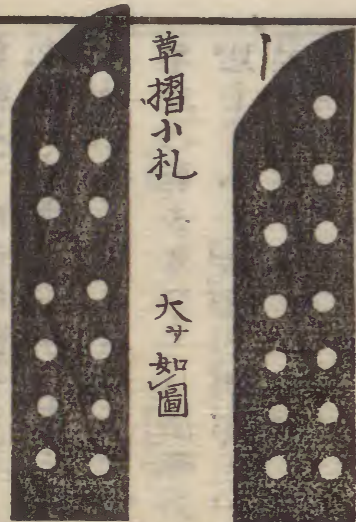 草摺小札
大サ如圖